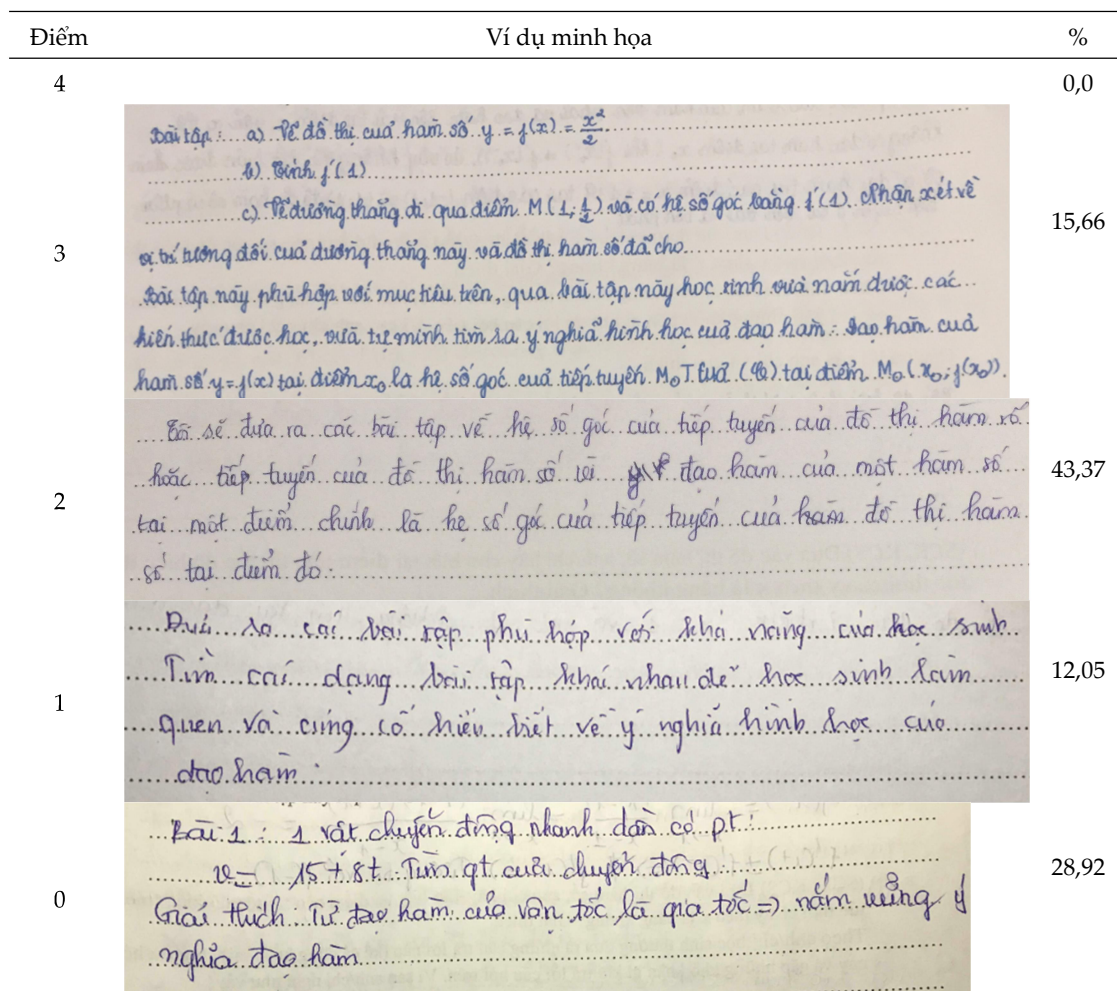 Điểm Ví dụ minh họa %
4 0,0
Bài tập: a) Vẽ đồ thị của hàm số y = f(x) = x²/2.
b) Tính f'(1)
c) Vẽ đường thẳng đi qua điểm M(1; 1/2) và có hệ số góc bằng f'(1). Nhận xét về
15,66
vị trí tương đối của đường thẳng này và đồ thị hàm số đã cho.
3
Bài tập này phù hợp với mục tiêu trên, qua bài tập này học sinh vừa nắm được các
kiến thức được học, vừa tự mình tìm ra ý nghĩa hình học của đạo hàm: Đạo hàm của
hàm số y=f(x) tại điểm x₀ là hệ số góc của tiếp tuyến M₀T của (C) tại điểm M₀(x₀; f(x₀)).
Tôi sẽ đưa ra các bài tập về hệ số góc của tiếp tuyến của đồ thị hàm số
hoặc tiếp tuyến của đồ thị hàm số vì đạo hàm của một hàm số
43,37
2
tại một điểm chính là hệ số góc của tiếp tuyến của hàm đồ thị hàm
số tại điểm đó.
Đưa ra các bài tập phù hợp với khả năng của học sinh.
Tìm các dạng bài tập khác nhau để học sinh làm
12,05
1
quen và củng cố hiểu biết về ý nghĩa hình học của
đạo hàm.
Bài 1: 1 vật chuyển động nhanh dần có pt:
v = 15 + 8t. Tìm gt của chuyển động
28,92
0
Giải thích: Từ đạo hàm của vận tốc là gia tốc => nắm vững ý
nghĩa đạo hàm.